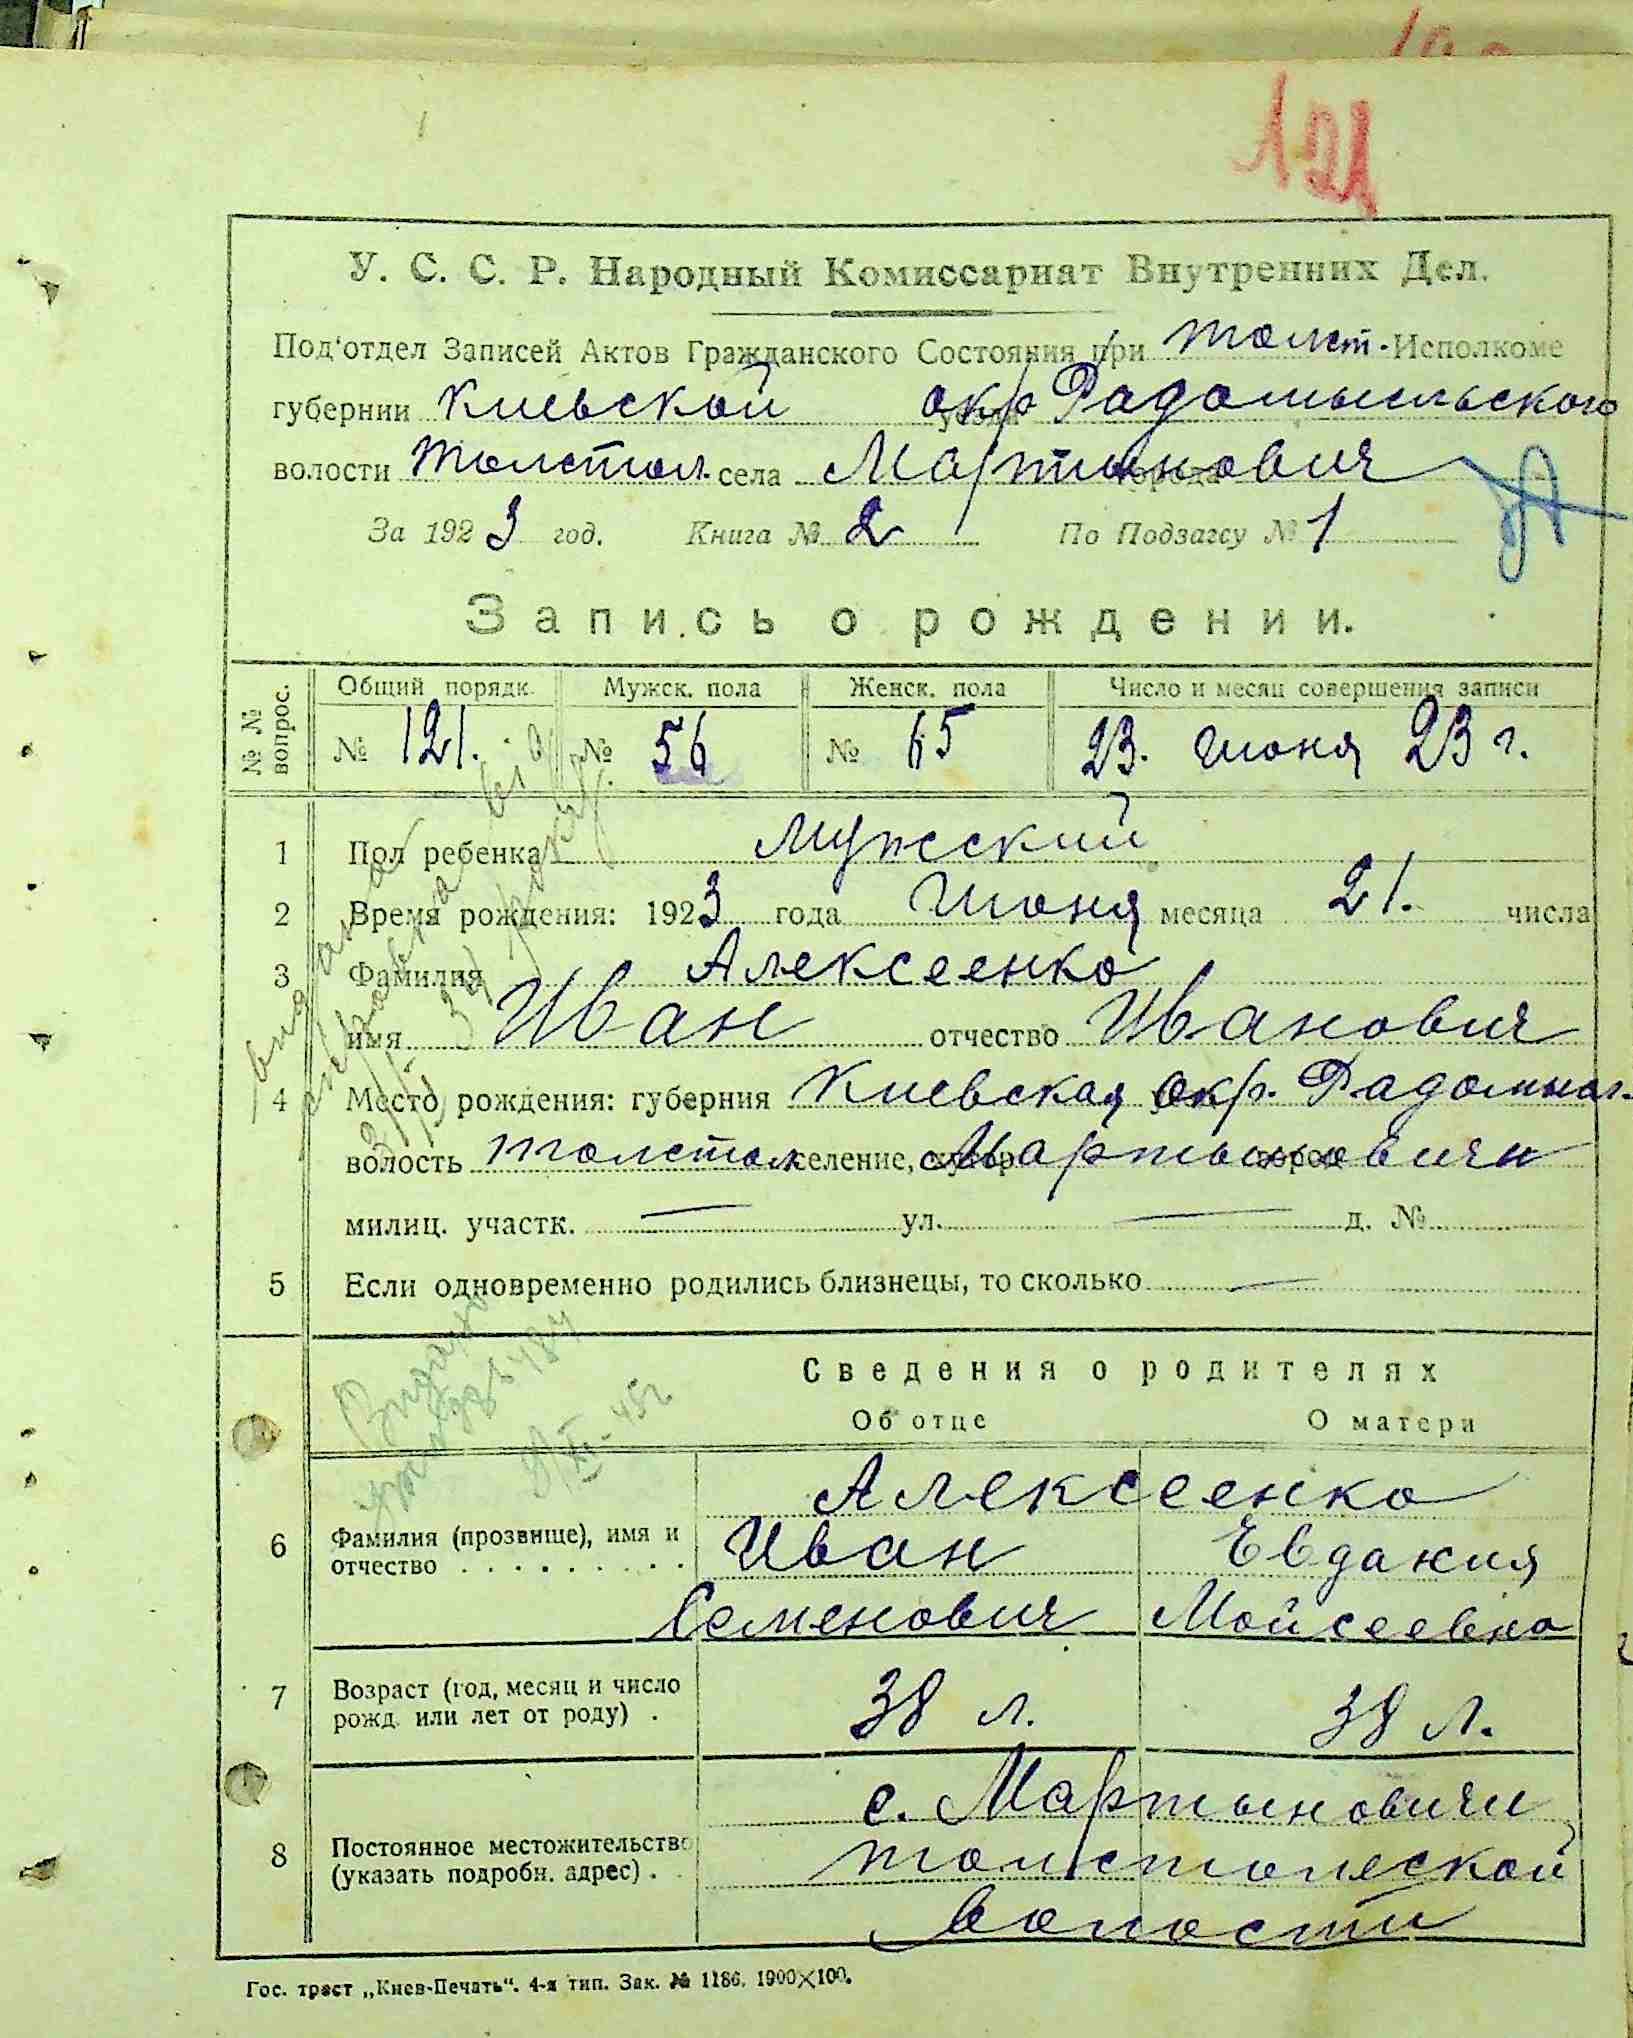 121
У. С. С. Р. Народный Комиссариат Внутренних Дел.
Под'отдел Записей Актов Гражданского Состояния при Толст. Исполкоме
губернии Киевской окр Радомысльского
волости Толстол. села Мартынович
За 1923 год. Книга № 2 По Подзагсу № 1
Запись о рождении.
№ № вопрос. Общий порядк. Мужск. пола Женск. пола Число и месяц совершения записи
№ 121. № 56 № 65 23. Июня 23 г.
1 Пол ребенка Мужский
2 Время рождения: 1923 года Июня месяца 21. числа
3 Фамилия Алексеенко
имя Иван отчество Иванович
4 Место рождения: губерния Киевская окр. Радомысл.
волость Толстол селение, хутор Мартыновичи
милиц. участк. — ул. — д. №
5 Если одновременно родились близнецы, то сколько —
Сведения о родителях
Об отце О матери
Алексеенко
6 Фамилия (прозвище), имя и отчество Иван Евдакия
Семенович Мойсеевна
7 Возраст (год, месяц и число рожд. или лет от роду) . 38 л. 38 л.
с. Мартыновичи
8 Постоянное местожительство (указать подробн. адрес) . Толстолеской
волости
Гос. трест „Киев-Печать“. 4-я тип. Зак. № 1186. 1900×100.